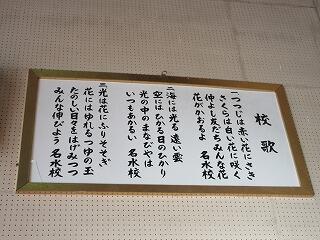 校歌
一つつじは赤い花にさき
さくらは白い花に咲く
仲よし友だちみんな花
花がかおるよ 名水校
二海には光る遠い雲
空にはひかる日のひかり
光の中のまなびやは
いつもあかるい 名水校
三光は花にふりそそぎ
花にはゆれるつゆの玉
たのしい日々をはげみつつ
みんな伸びよう 名水校